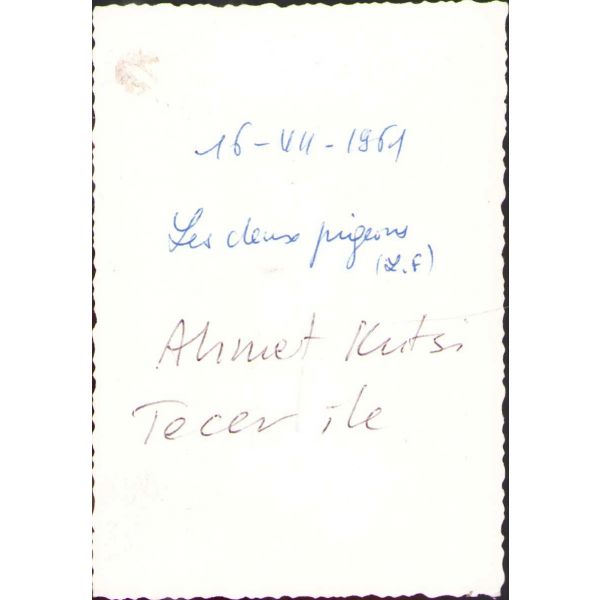 16-VII-1961
Les deux pigeons
(L.F)
Ahmet Kutsi
Tecer ile